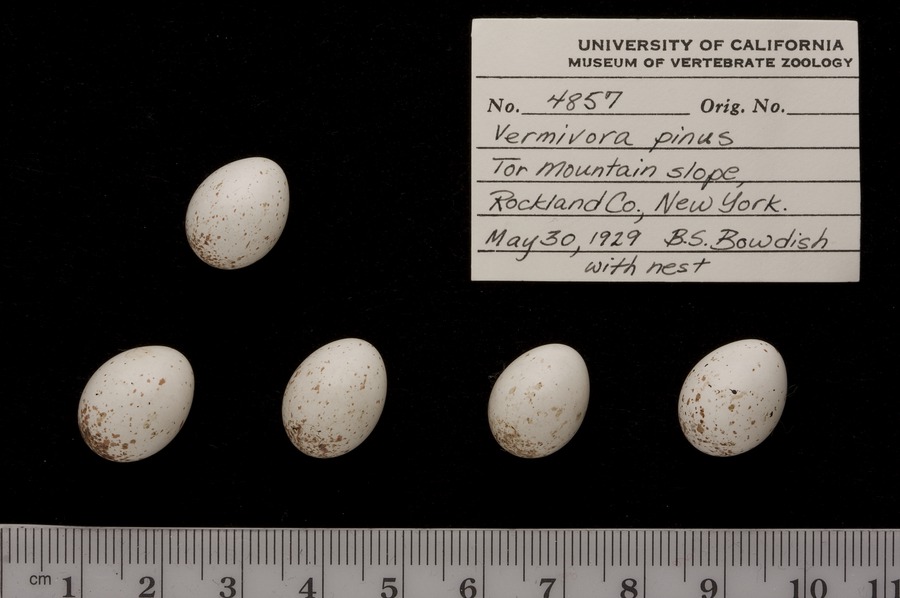 UNIVERSITY OF CALIFORNIA
MUSEUM OF VERTEBRATE ZOOLOGY
No. 4857 Orig. No.
Vermivora pinus
Tor Mountain slope,
Rockland Co., New York.
May 30, 1929 B.S. Bowdish
with nest
cm 1 2 3 4 5 6 7 8 9 10 11